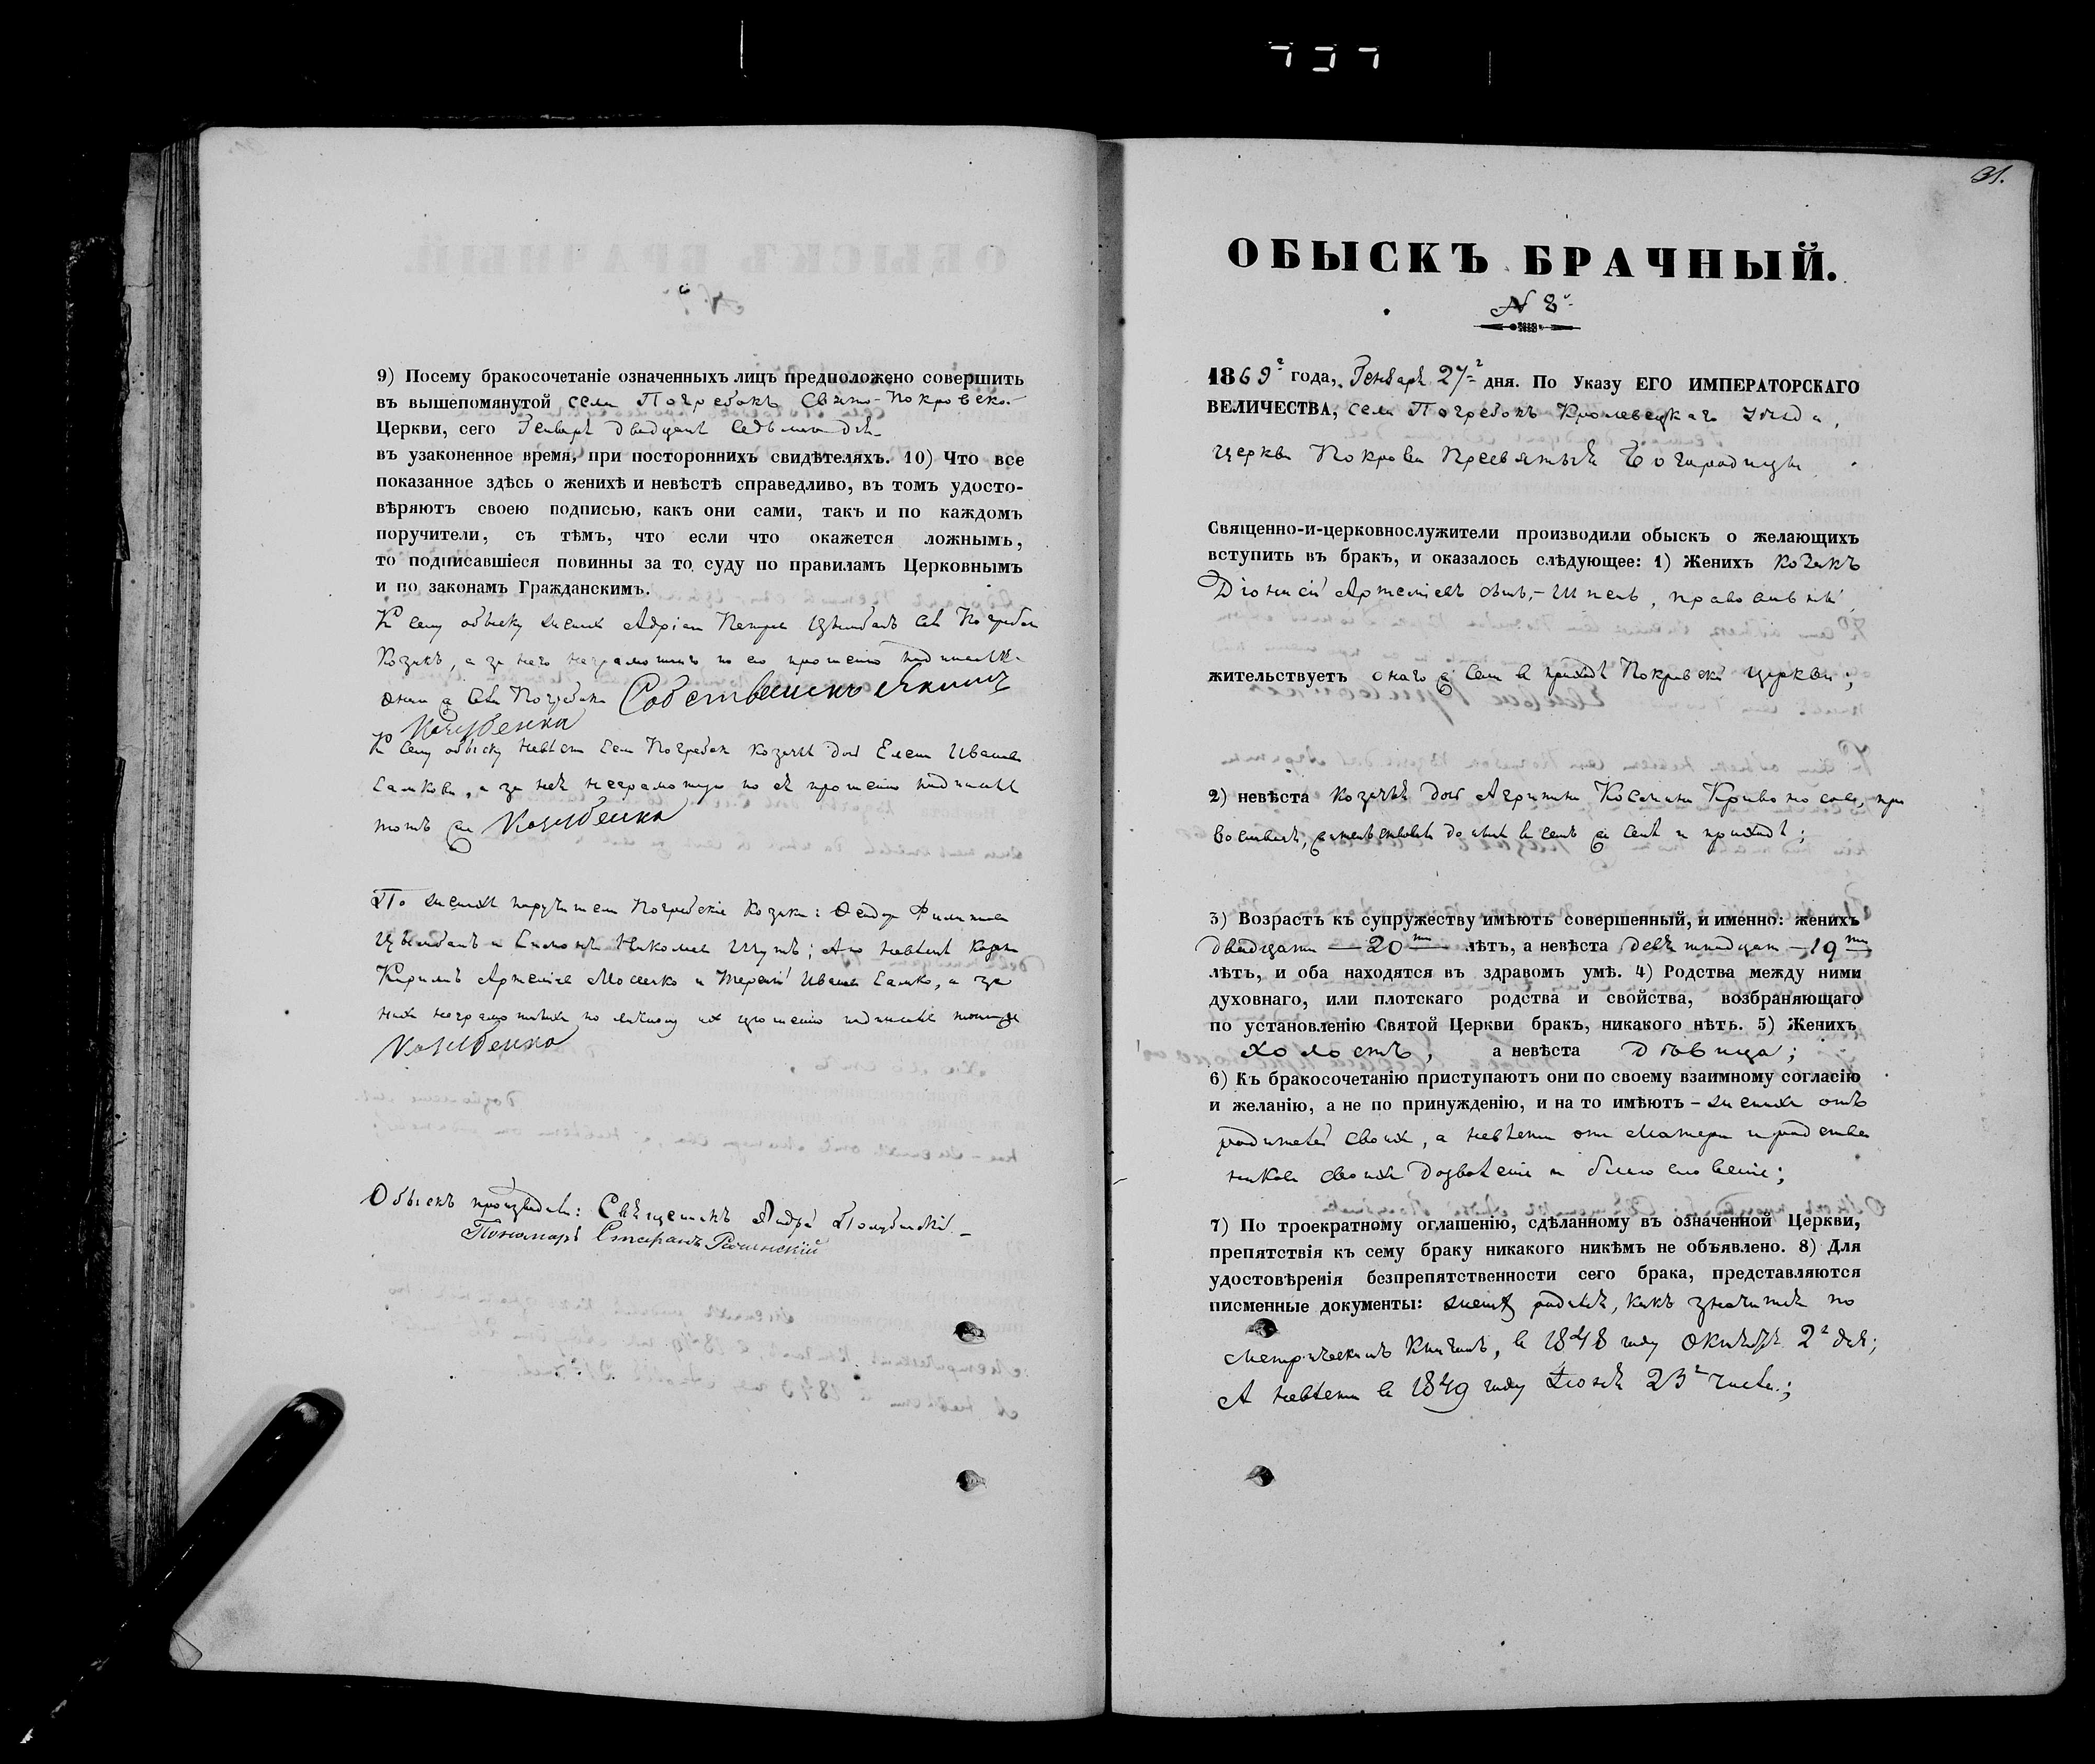 9) Посему бракосочетаніе означенныхъ лицъ предположено совершить
въ вышепомянутой села Погребокъ Свято-Покровской
Церкви, сего Генваря двадцать седьмаго дня
въ узаконенное время, при постороннихъ свидѣтеляхъ. 10) Что все
показанное здѣсь о женихѣ и невѣстѣ справедливо, въ томъ удосто-
вѣряютъ своею подписью, какъ они сами, такъ и по каждомъ
поручители, съ тѣмъ, что если что окажется ложнымъ,
то подписавшіеся повинны за то суду по правиламъ Церковнымъ
и по законамъ Гражданскимъ.
К сему обыску женихъ Адріан Петров Цымбалъ села Погребок
Козакъ, а за него неграмотнаго по его прошению
села Погребок Собственникъ
К сему обыску невѣста села Погребок козачья дочь Елена Иванова
Самкова, а за неѣ неграмотную по еѣ прошенію
тотъ же
По женихѣ поручители Погребскіе козаки: Федор Филипов
Цымбалъ и Симонъ Николаев Шутъ; А по невѣстѣ козаки
Кирилъ Артеміев Мосенко и Терентій Иванов Самко, а за
них неграмотныхъ по личному их прошенію
Обыскъ производили: Священникъ Андрей
Пономарь Стефанъ
31.
ОБЫСКЪ БРАЧНЫЙ.
N 8й
1869г года, Генваря 27г дня. По Указу ЕГО ИМПЕРАТОРСКАГО
ВЕЛИЧЕСТВА, села Погребокъ Кролевецкаго уѣзда,
церкви Покрова Пресвятыя Богородицы
Священно-и-церковнослужители производили обыскъ о желающихъ
вступить въ бракъ, и оказалось слѣдующее: 1) Женихъ козакъ
Діонисій Артеміевъ сынъ, Шпенъ, православный,
жительствуетъ онаго же села в приходѣ Покровской церкви;
2) невѣста козачья дочь Агрипина Космина Кривоносова, пра
вославная, жительствовала до нынѣ в семъ же селѣ и приходѣ;
3) Возрастъ къ супружеству имѣютъ совершенный, и именно: женихъ
двадцати — 20ти лѣтъ, а невѣста девятнадцати — 19ти
лѣтъ, и оба находятся въ здравомъ умѣ. 4) Родства между ними
духовнаго, или плотскаго родства и свойства, возбраняющаго
по установленію Святой Церкви бракъ, никакого нѣтъ. 5) Женихъ
холостъ, а невѣста дѣвица;
6) Къ бракосочетанію приступаютъ они по своему взаимному согласію
и желанію, а не по принужденію, и на то имѣютъ – женихъ отъ
родителей своихъ, а невѣста от матери и родствен
никовъ своихъ дозволеніе и благословеніе;
7) По троекратному оглашенію, сдѣланному въ означенной Церкви,
препятствія къ сему браку никакого никѣмъ не объявлено. 8) Для
удостовѣренія безпрепятственности сего брака, представляются
писменные документы: женихъ родился, какъ значится по
метрическимъ книгамъ, в 1848 году Октября 2г дня;
А невѣста в 1849 году Іюня 23г числа;